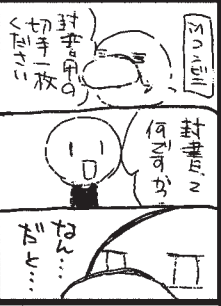 コンビニ
封書用の
切手一枚
ください
封書って
何ですか
なん…
だと…